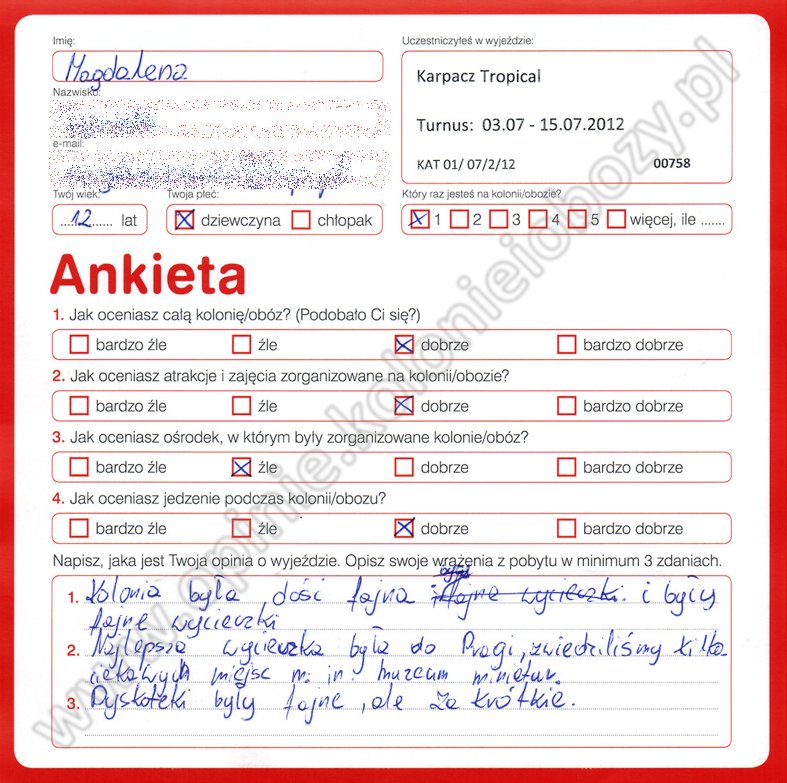 Imię:
Magdalena
Nazwisko:
e-mail:
Twój wiek:
Twoja płeć:
....12...... lat
dziewczyna
chłopak
Uczestniczyłeś w wyjeździe:
Karpacz Tropical
Turnus: 03.07 - 15.07.2012
KAT 01/ 07/2/12
00758
Który raz jesteś na kolonii/obozie?
1 2 3 4 5 więcej, ile .......
Ankieta
1. Jak oceniasz całą kolonię/obóz? (Podobało Ci się?)
bardzo źle źle dobrze bardzo dobrze
2. Jak oceniasz atrakcje i zajęcia zorganizowane na kolonii/obozie?
bardzo źle źle dobrze bardzo dobrze
3. Jak oceniasz ośrodek, w którym były zorganizowane kolonie/obóz?
bardzo źle źle dobrze bardzo dobrze
4. Jak oceniasz jedzenie podczas kolonii/obozu?
bardzo źle źle dobrze bardzo dobrze
Napisz, jaka jest Twoja opinia o wyjeździe. Opisz swoje wrażenia z pobytu w minimum 3 zdaniach.
1. Kolonia była dość fajna i fajne wycieczki. i były
fajne wycieczki
2. Najlepsza wycieczka była do Pragi, zwiedziliśmy kilka
ciekawych miejsc m. in. muzeum miniatur.
3. Dyskoteki były fajne, ale za krótkie.
www.opinie.kolonieiobozy.pl